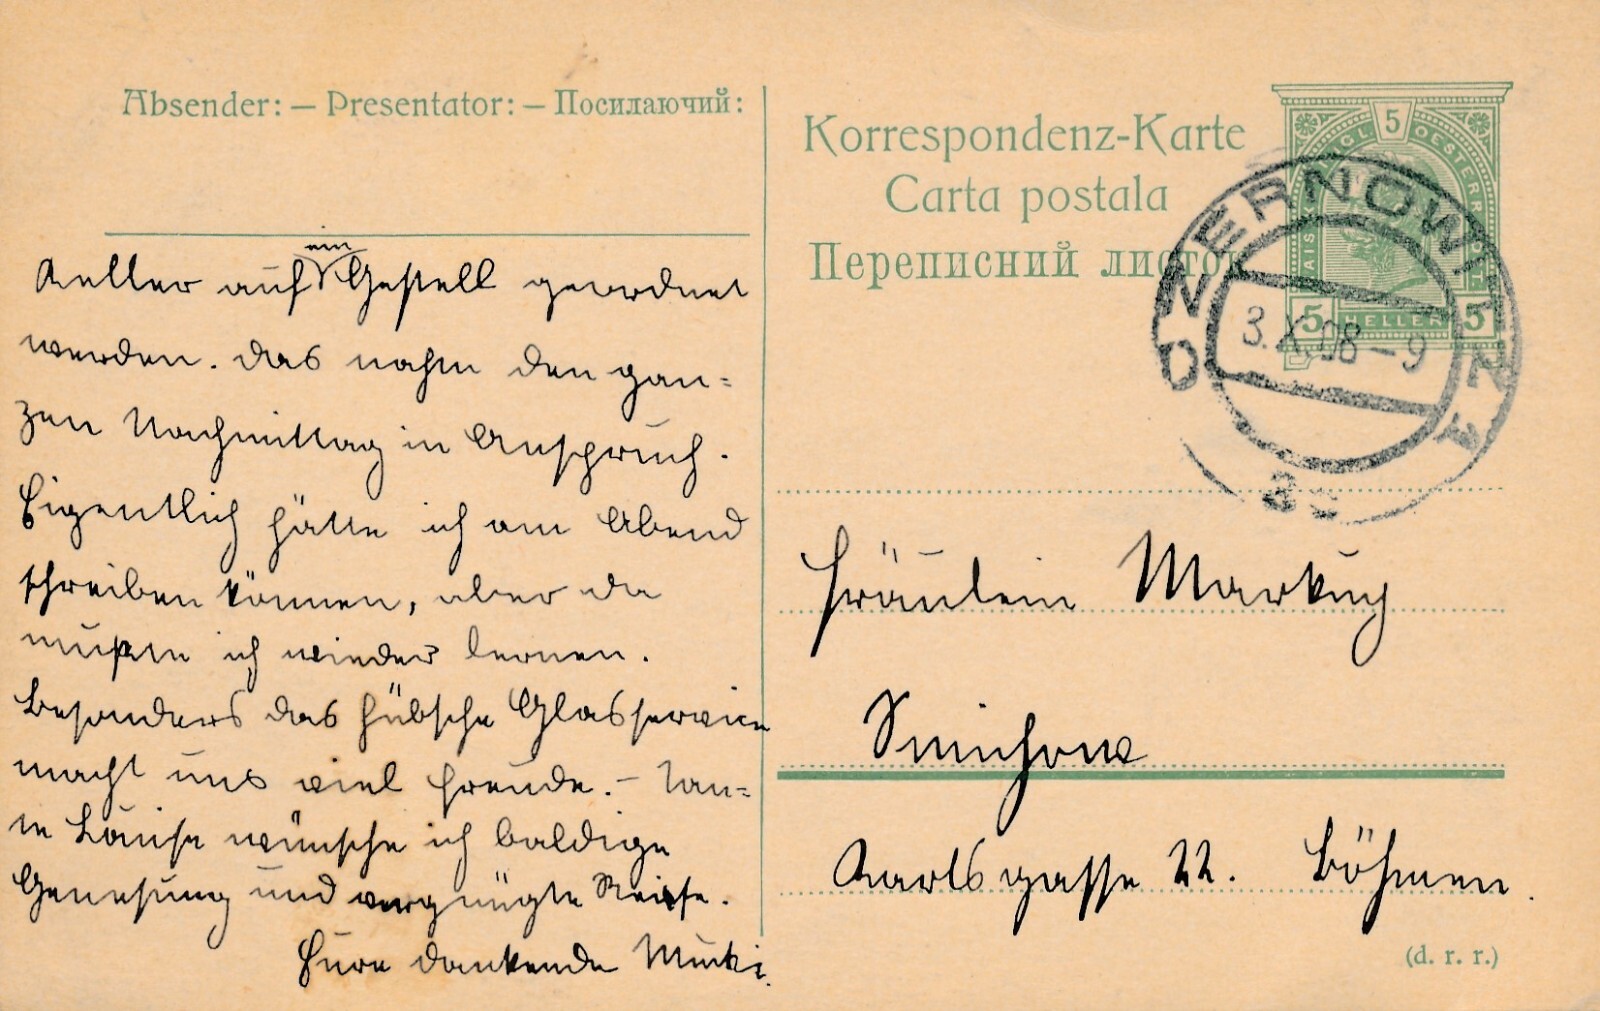 Absender: — Presentator: — Посилаючий:
Keller auf ein Gestell geordnet
werden. Das nahm den gan=
zen Nachmittag in Anspruch.
Eigentlich hätte ich am Abend
schreiben können, aber da
mußte ich wieder lernen.
Besonders das hübsche Glasservice
macht uns viel Freude. – Tan=
te Louise wünsche ich baldige
Genesung und vergnügte Reise.
Eure dankende Mucki.
Korrespondenz-Karte
Carta postala
Переписний листок
5
KAIS. KÖNIGL. OESTERR. POST.
5 HELLER 5
CZERNOWITZ 1
3.X.08–9
Fräulein
Smichow
Karlsgasse 22. Böhmen.
(d. r. r.)